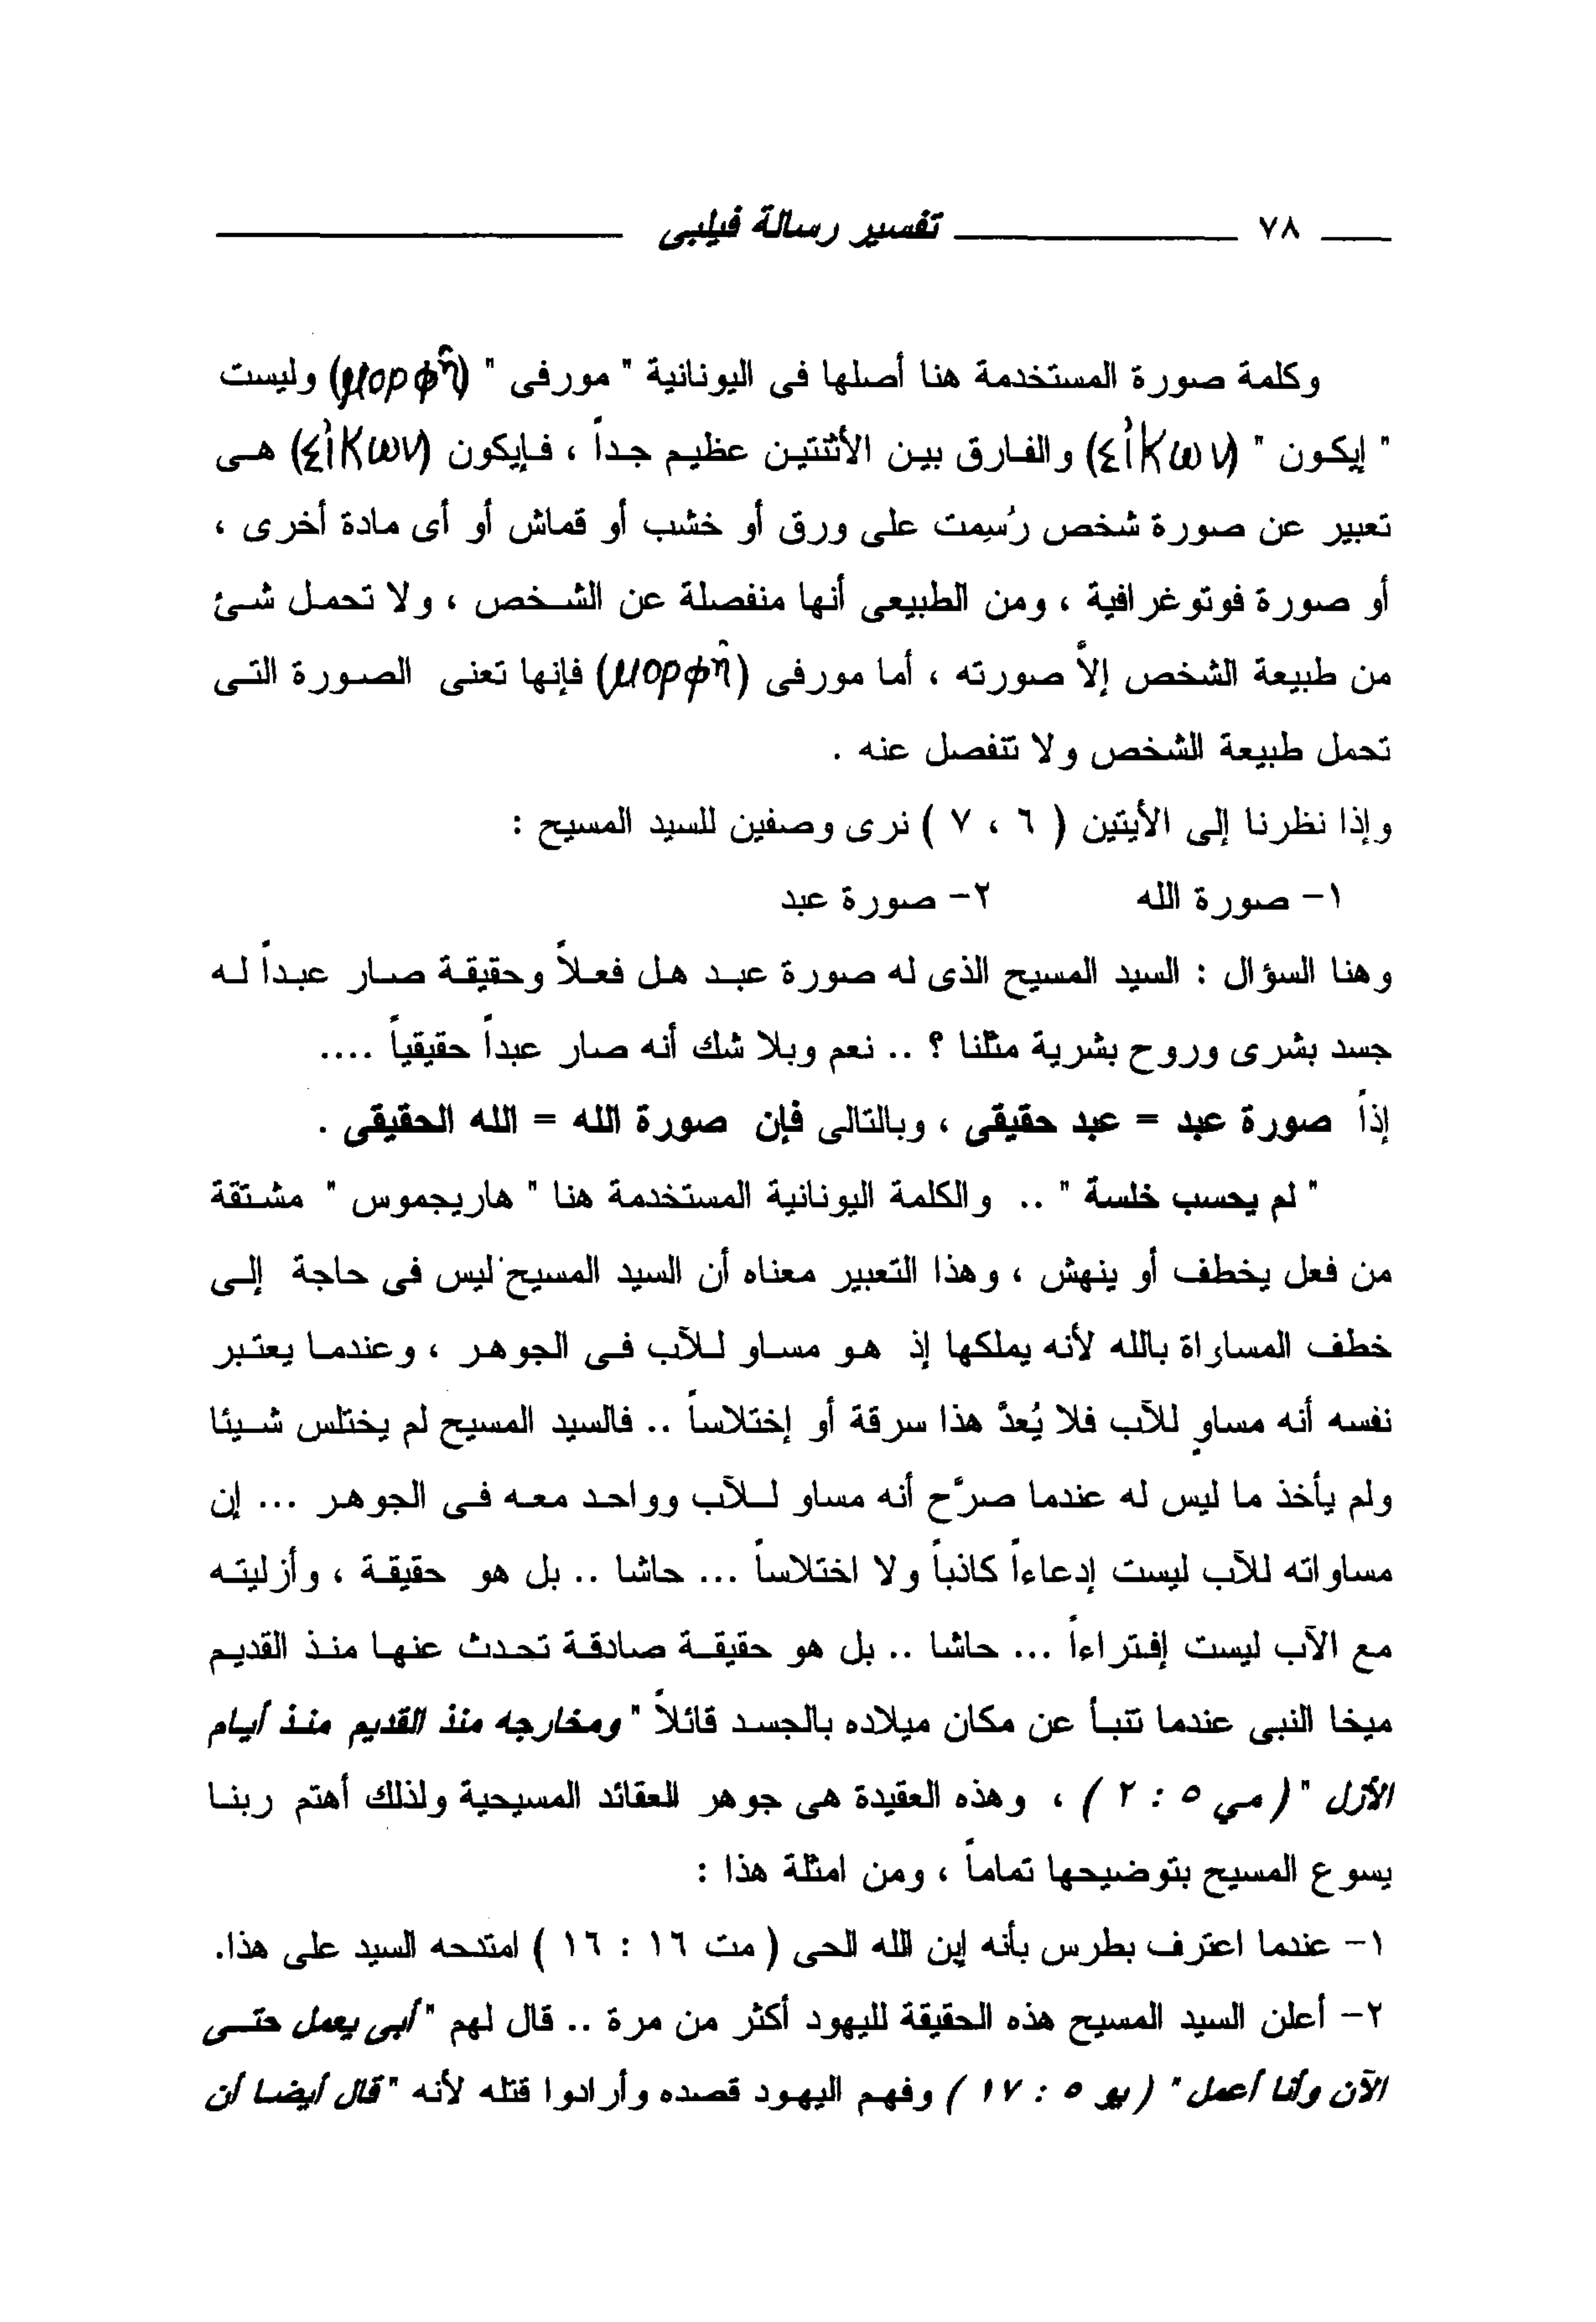 ٧٨ تفسير رسالة فيلبى
وكلمة صورة المستخدمة هنا أصلها فى اليونانية " مورفى " (μορφῆ) وليست
" إيكون " (εἰκων) والفارق بين الأثنتين عظيم جداً ، فإيكون (εἰκων) هى
تعبير عن صورة شخص رُسِمت على ورق أو خشب أو قماش أو أى مادة أخرى ،
أو صورة فوتوغرافية ، ومن الطبيعى أنها منفصلة عن الشخص ، ولا تحمل شئ
من طبيعة الشخص إلاَّ صورته ، أما مورفى (μορφῆ) فإنها تعنى الصورة التى
تحمل طبيعة الشخص ولا تنفصل عنه .
وإذا نظرنا إلى الأيتين ( ٦ ، ٧ ) نرى وصفين للسيد المسيح :
١- صورة الله ٢- صورة عبد
وهنا السؤال : السيد المسيح الذى له صورة عبد هل فعلاً وحقيقة صار عبداً له
جسد بشرى وروح بشرية مثلنا ؟ .. نعم وبلا شك أنه صار عبداً حقيقياً ....
إذاً صورة عبد = عبد حقيقى ، وبالتالى فإن صورة الله = الله الحقيقى .
" لم يحسب خلسة " .. والكلمة اليونانية المستخدمة هنا " هاريجموس " مشتقة
من فعل يخطف أو ينهش ، وهذا التعبير معناه أن السيد المسيح ليس فى حاجة إلى
خطف المساراة بالله لأنه يملكها إذ هو مساو للآب فى الجوهر ، وعندما يعتبر
نفسه أنه مساوٍ للآب فلا يُعدَّ هذا سرقة أو إختلاساً .. فالسيد المسيح لم يختلس شيئا
ولم يأخذ ما ليس له عندما صرَّح أنه مساو للآب وواحد معه فى الجوهر ... إن
مساواته للآب ليست إدعاءاً كاذباً ولا اختلاساً ... حاشا .. بل هو حقيقة ، وأزليته
مع الآب ليست إفتراءاً ... حاشا .. بل هو حقيقة صادقة تحدث عنها منذ القديم
ميخا النبى عندما تنبأ عن مكان ميلاده بالجسد قائلاً " ومخارجه منذ القديم منذ أيام
الأزل " ( مي ٥ : ٢ ) ، وهذه العقيدة هى جوهر العقائد المسيحية ولذلك أهتم ربنا
يسوع المسيح بتوضيحها تماماً ، ومن امثلة هذا :
١- عندما اعترف بطرس بأنه إبن الله الحى ( مت ١٦ : ١٦ ) امتدحه السيد على هذا.
٢- أعلن السيد المسيح هذه الحقيقة لليهود أكثر من مرة .. قال لهم " أبى يعمل حتى
الآن وأنا أعمل " ( يو ٥ : ١٧ ) وفهم اليهود قصده وأرادوا قتله لأنه " قال أيضا أن